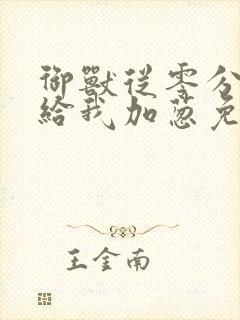 御獸從零分
給我加蔥免
王金南